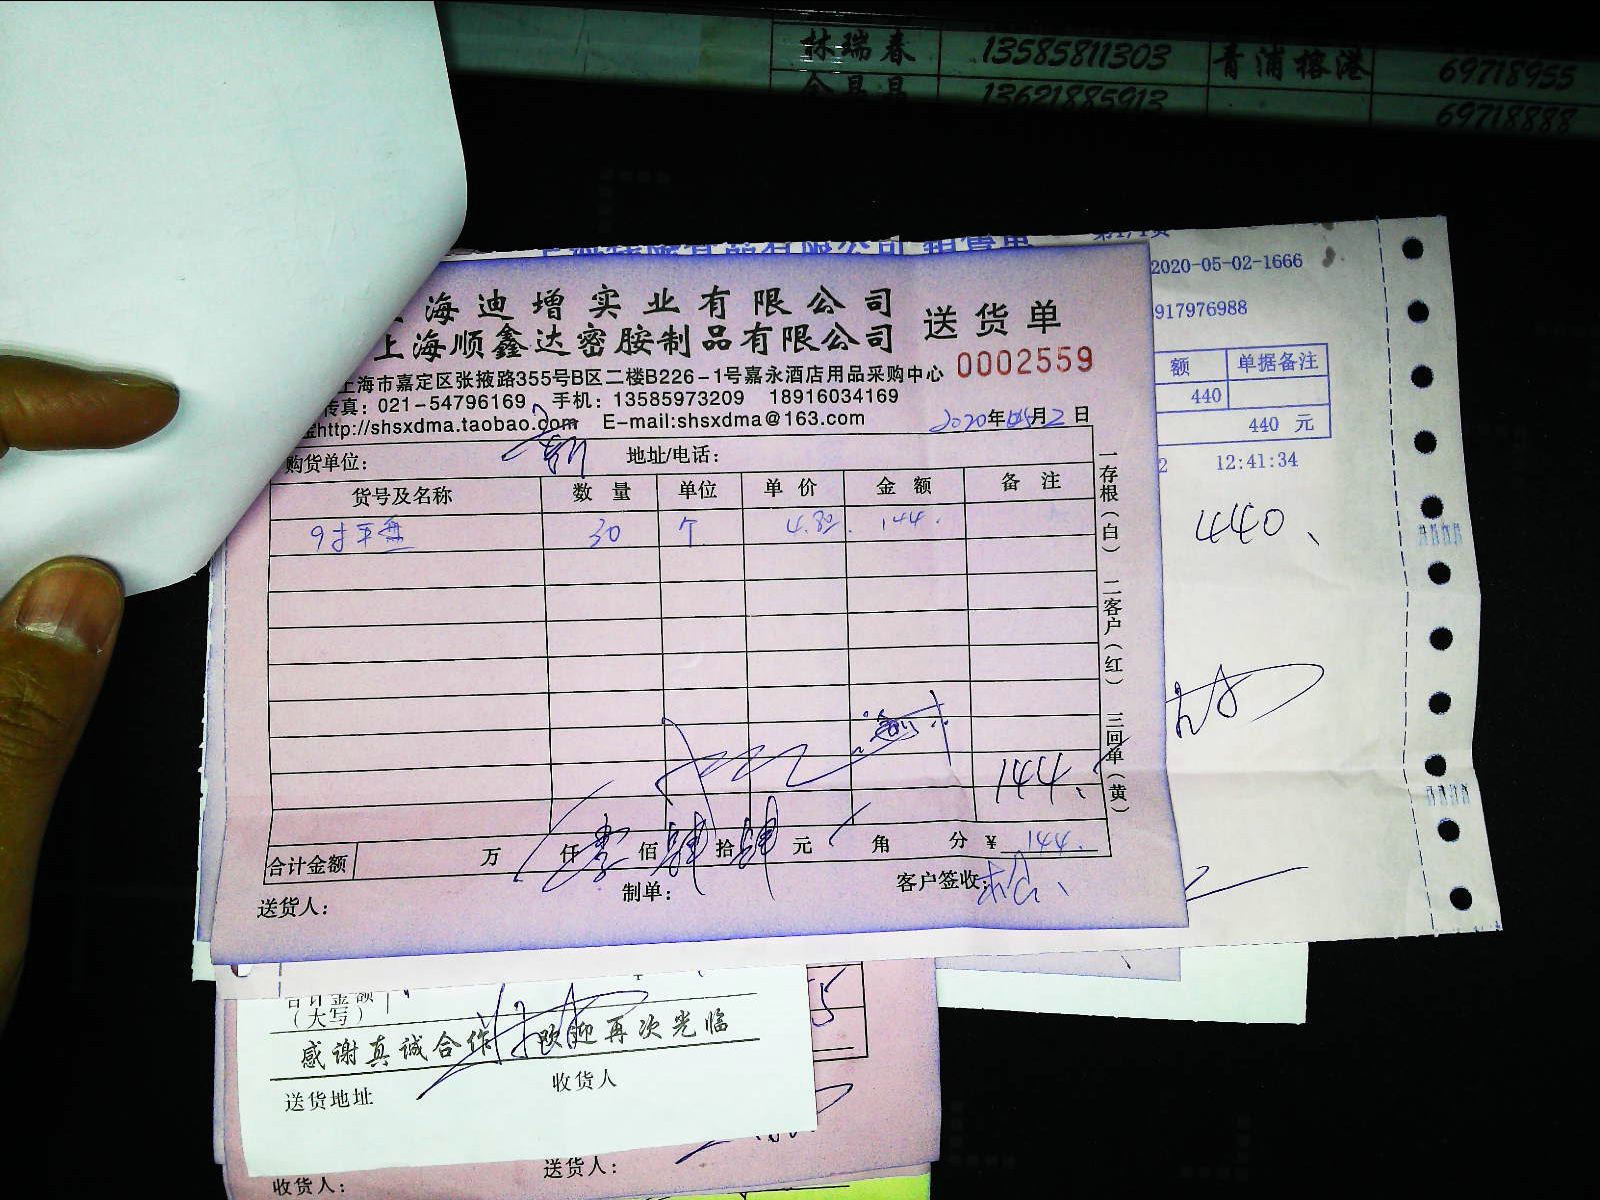 林瑞春 13585811303 青浦榕港 69718955
13621885913 69718888
2020-05-02-1666
917976988
海迪增实业有限公司 送货单
上海顺鑫达密胺制品有限公司
0002559
上海市嘉定区张掖路355号B区二楼B226-1号嘉永酒店用品采购中心
传真：021-54796169 手机：13585973209 18916034169
http://shsxdma.taobao.com E-mail:shsxdma@163.com
2020年 月2日
购货单位： 地址/电话：
货号及名称 数量 单位 单价 金额 备注
9寸平盘 30 个 4.80 144.
144、
合计金额 万 仟壹佰肆拾肆元 角 分 ¥ 144.
送货人： 制单： 客户签收：
一存根（白） 二客户（红） 三回单（黄）
额 单据备注
440
440 元
2 12:41:34
440、
合计金额
（大写）
感谢真诚合作 欢迎再次光临
送货地址 收货人
送货人：
收货人：